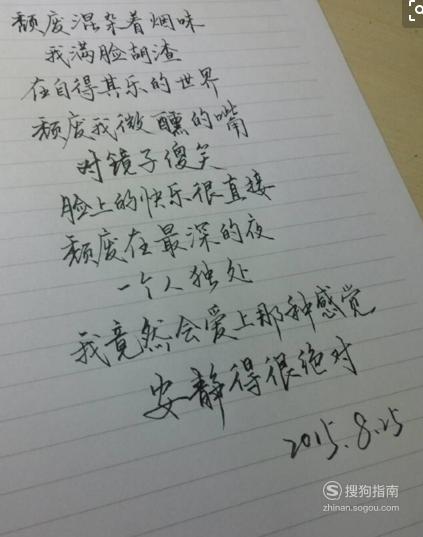 颓废混杂着烟味
我满脸胡渣
在自得其乐的世界
颓废我微醺的嘴
对镜子傻笑
脸上的快乐很直接
颓废在最深的夜
一个人独处
我竟然会爱上那种感觉
安静得很绝对
2015.8.25
搜狗指南
zhinan.sogou.com